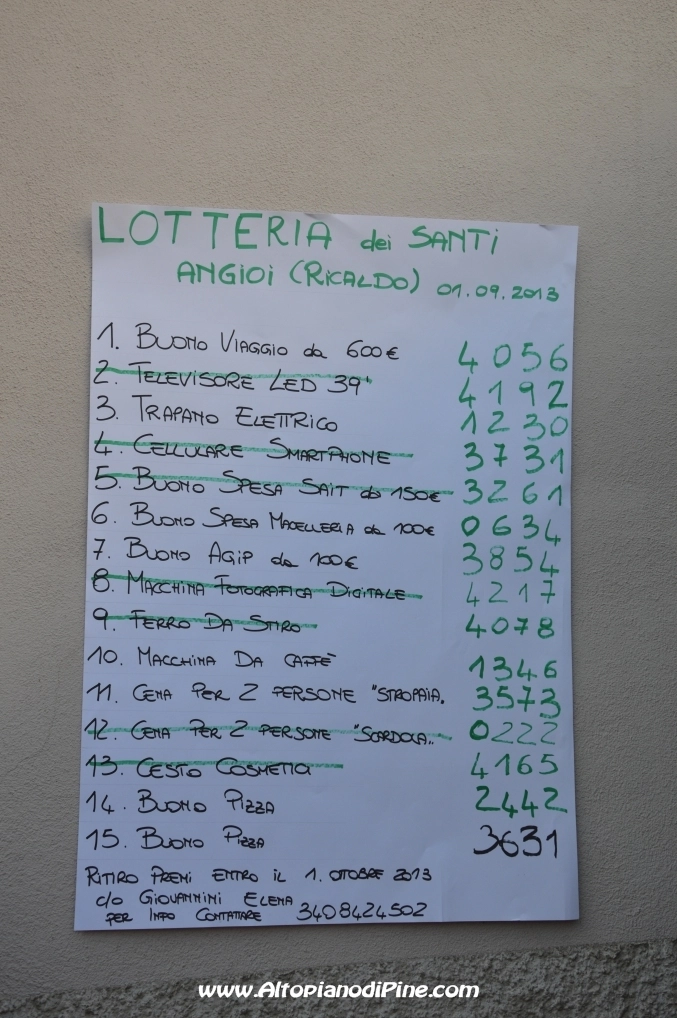 LOTTERIA dei SANTI
ANGIOI (RICALDO) 01.09.2013
1. BUONO VIAGGIO da 600€ 4056
2. TELEVISORE LED 39" 4192
3. TRAPANO ELETTRICO 1230
4. CELLULARE SMARTPHONE 3731
5. BUONO SPESA SAIT da 150€ 3261
6. BUONO SPESA MACELLERIA da 100€ 0634
7. BUONO AGIP da 100€ 3854
8. MACCHINA FOTOGRAFICA DIGITALE 4217
9. FERRO DA STIRO 4078
10. MACCHINA DA CAFFÈ 1346
11. CENA PER 2 PERSONE "STROPAIA. 3573
12. CENA PER 2 PERSONE "SCARDOLA.. 0222
13. CESTO COSMETICI 4165
14. BUONO PIZZA 2442
15. BUONO PIZZA 3631
RITIRO PREMI ENTRO IL 1. OTTOBRE 2013
c/o GIOVANNINI ELENA
PER INFO CONTATTARE 3408424502
www.AltopianodiPine.com